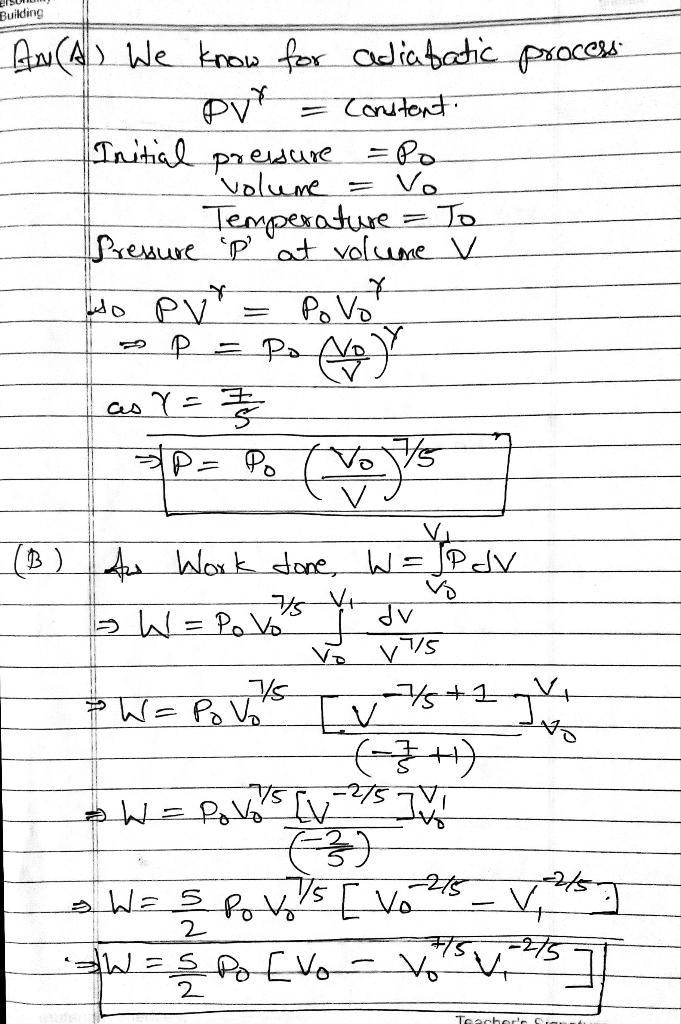 Building
Ans(A) We know for adiabatic process.
PV^γ = Constant.
Initial pressure = P₀
volume = V₀
Temperature = T₀
Pressure 'P' at volume V
so PV^γ = P₀V₀^γ
⇒ P = P₀ (V₀/V)^γ
as γ = 7/5
⇒ P = P₀ (V₀/V)^7/5
(B) As Work done, W = ∫_V₀^V₁ P dV
⇒ W = P₀V₀^7/5 ∫_V₀^V₁ dv/V^7/5
⇒ W = P₀V₀^7/5 [V^-7/5+1]_V₀^V₁/(-7/5+1)
⇒ W = P₀V₀^7/5 [V^-2/5]_V₀^V₁/(-2/5)
⇒ W = 5/2 P₀V₀^7/5 [V₀^-2/5 - V₁^-2/5]
⇒ W = 5/2 P₀ [V₀ - V₀^7/5 V₁^-2/5]